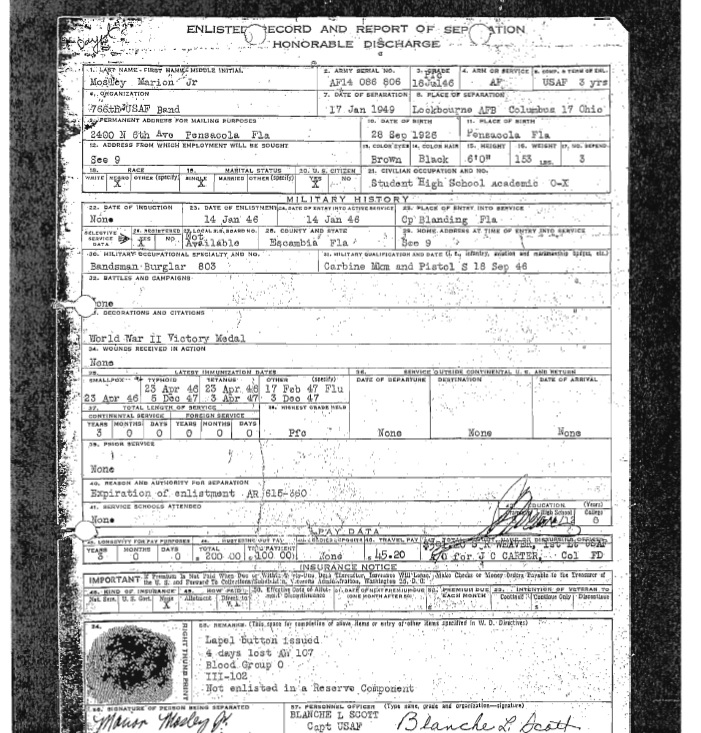 ENLISTED RECORD AND REPORT OF SEPARATION
HONORABLE DISCHARGE
1. LAST NAME - FIRST NAME - MIDDLE INITIAL
2. ARMY SERIAL NO.
3. GRADE
4. ARM OR SERVICE
5. COMP. & TERM OF ENL.
Mosley Marion Jr
AF14 086 806
16Jul46
AF
USAF 3 yrs
6. ORGANIZATION
7. DATE OF SEPARATION
8. PLACE OF SEPARATION
766th USAF Band
17 Jan 1949
Lockbourne AFB Columbus 17 Ohio
9. PERMANENT ADDRESS FOR MAILING PURPOSES
10. DATE OF BIRTH
11. PLACE OF BIRTH
2400 N 6th Ave Pensacola Fla
28 Sep 1926
Pensacola Fla
12. ADDRESS FROM WHICH EMPLOYMENT WILL BE SOUGHT
13. COLOR EYES
14. COLOR HAIR
15. HEIGHT
16. WEIGHT
17. NO. DEPEND.
See 9
Brown
Black
6'0"
153 LBS.
3
18. RACE
19. MARITAL STATUS
20. U.S. CITIZEN
21. CIVILIAN OCCUPATION AND NO.
WHITE NEGRO OTHER (specify)
SINGLE MARRIED OTHER (specify)
YES NO
X
X
X
Student High School Academic 0-X
MILITARY HISTORY
22. DATE OF INDUCTION
23. DATE OF ENLISTMENT
24. DATE OF ENTRY INTO ACTIVE SERVICE
25. PLACE OF ENTRY INTO SERVICE
None
14 Jan 46
14 Jan 46
Cp Blanding Fla
SELECTIVE SERVICE DATA
26. REGISTERED
YES NO
X
27. LOCAL S.S. BOARD NO.
28. COUNTY AND STATE
29. HOME ADDRESS AT TIME OF ENTRY INTO SERVICE
Not Available
Escambia Fla
See 9
30. MILITARY OCCUPATIONAL SPECIALTY AND NO.
31. MILITARY QUALIFICATION AND DATE (i. e., infantry, aviation and marksmanship badges, etc.)
Bandsman Burglar 803
Carbine Mkm and Pistol S 18 Sep 46
32. BATTLES AND CAMPAIGNS
one
DECORATIONS AND CITATIONS
World War II Victory Medal
34. WOUNDS RECEIVED IN ACTION
None
35. LATEST IMMUNIZATION DATES
36. SERVICE OUTSIDE CONTINENTAL U.S. AND RETURN
SMALLPOX
TYPHOID
TETANUS
OTHER (specify)
DATE OF DEPARTURE
DESTINATION
DATE OF ARRIVAL
23 Apr 46
23 Apr 46
17 Feb 47 Flu
23 Apr 46
5 Dec 47
3 Apr 47
3 Dec 47
37. TOTAL LENGTH OF SERVICE
38. HIGHEST GRADE HELD
CONTINENTAL SERVICE
FOREIGN SERVICE
YEARS MONTHS DAYS YEARS MONTHS DAYS
3 0 0 0 0 0
Pfc
None
None
None
39. PRIOR SERVICE
None
40. REASON AND AUTHORITY FOR SEPARATION
Expiration of enlistment AR 615-360
41. SERVICE SCHOOLS ATTENDED
42. EDUCATION (Years)
High School
College
None
0
PAY DATA
43. LONGEVITY FOR PAY PURPOSES
44. MUSTERING OUT PAY
46. TRAVEL PAY
YEARS MONTHS DAYS
TOTAL
THIS PAYMENT
3 0 0
200.00
100.00
None
45.20
S R WEAVER, 1st Lt USAF
for J C CARTER, Col FD
INSURANCE NOTICE
IMPORTANT
48. KIND OF INSURANCE
49. HOW PAID
Nat. Serv. U.S. Govt. None
Allotment
Direct to V. A.
X
RIGHT THUMB PRINT
55. REMARKS (This space for completion of above items or entry of other items specified in W. D. Directives)
Lapel button issued
4 days lost AW 107
Blood Group O
III-102
Not enlisted in a Reserve Component
56. SIGNATURE OF PERSON BEING SEPARATED
57. PERSONNEL OFFICER (Type name, grade and organization—signature)
Marion Mosley Jr.
BLANCHE L SCOTT
Capt USAF
Blanche L. Scott